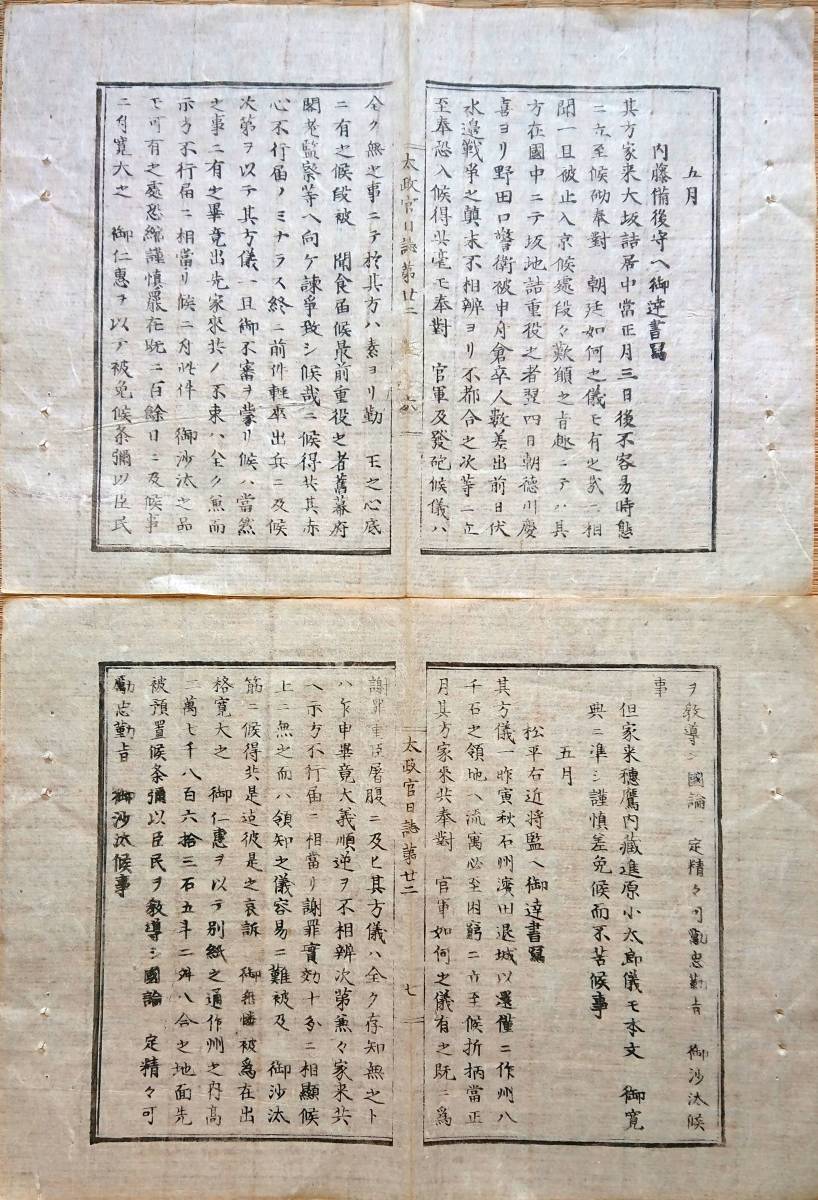 五月
内藤備後守ヘ御達書冩
其方家来大坂詰居中當正月三日後不容易時態
ニ立至候砌奉對 朝廷如何之儀モ有之哉ニ相
聞一旦被止入京候處段々歎願之旨趣ニテハ其
方在國中ニテ坂地詰重役之者翌四日朝徳川慶
喜ヨリ野田口警衛被申付倉卒人数差出前日伏
水邊戦争之顛末不相辨ヨリ不都合之次第ニ立
至奉恐入候得共毫モ奉對 官軍及發砲候儀ハ
太政官日誌第廿二 六
全ク無之事ニテ於其方ハ素ヨリ勤 王之心底
ニ有之候段被 聞食届候最前重役之者舊幕府
閣老監察等ヘ向ケ諫爭致シ候哉ニ候得共其赤
心不行届ノミナラス終ニ前件輕卒出兵ニ及候
次第ヲ以テ其方儀一旦御不審ヲ蒙リ候ハ當然
之事ニ有之畢竟出先家来共ノ不束ハ全ク兼而
示方不行届ニ相當リ候ニ付此件 御沙汰之品
モ可有之處恐縮謹慎罷在既ニ百餘日ニ及候事
ニ付寛大之 御仁惠ヲ以テ被免候条彌以臣民
ヲ教導シ國論 定精々可勵忠勤旨 御沙汰候
事
但家来穂鷹内藏進原小太郎儀モ本文 御寛
典ニ準シ謹慎差免候而不苦候事
五月
松平右近將監ヘ御達書冩
其方儀一昨寅秋石州濱田退城以還僅ニ作州八
千石之領地ヘ流寓必至困窮ニ立至候折柄當正
月其方家来共奉對 官軍如何之儀有之既ニ為
太政官日誌第廿二 七
謝罪重臣屠腹ニ及ヒ其方儀ハ全ク存知無之ト
ハ乍申畢竟大義順逆ヲ不相辨次第兼々家来共
ヘ示方不行届ニ相當リ謝罪實効十分ニ相顯候
上ニ無之而ハ領知之儀容易ニ難被及 御沙汰
筋ニ候得共是迠彼是之哀訴 御垂憐被爲在出
格寛大之 御仁惠ヲ以テ別紙之通作州之内高
二萬七千八百六拾三石五斗二舛八合之地面先
被預置候条彌以臣民ヲ教導シ國論 定精々可
勵忠勤旨 御沙汰候事